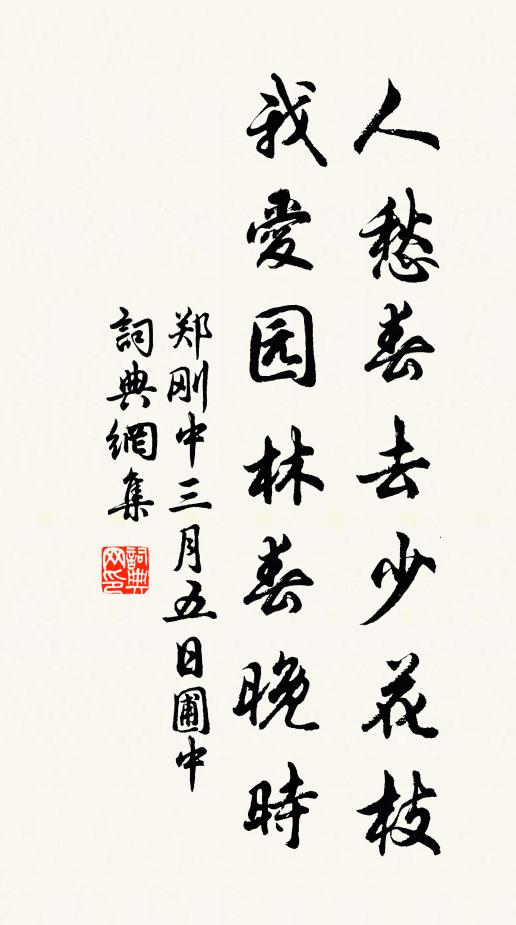 人愁春去少花枝
我愛园林春晚時
郑刚中三月五日圃中
詞典網集
詞典网印